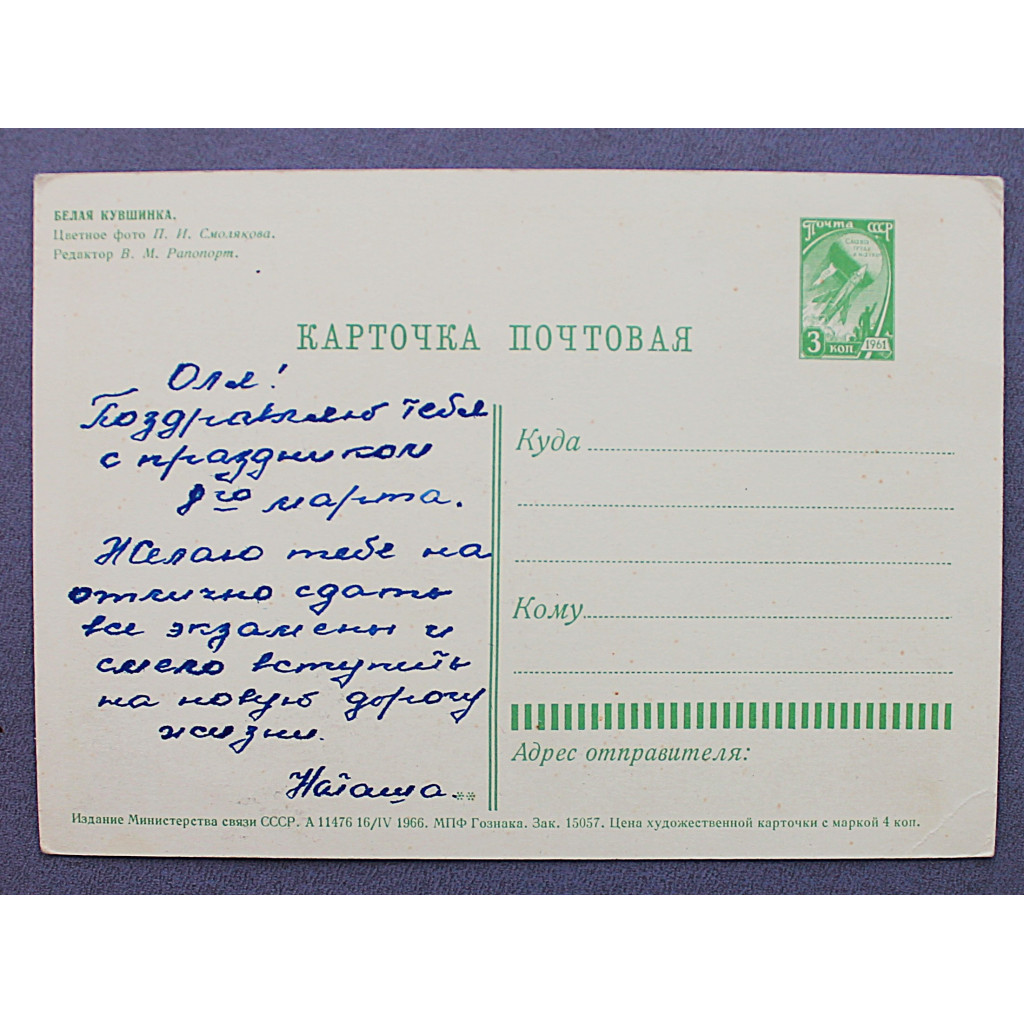 БЕЛАЯ КУВШИНКА.
Цветное фото П. И. Смолякова.
Редактор В. М. Рапопорт.
Почта СССР
Слава
труду
и науке!
3 коп. 1961
КАРТОЧКА ПОЧТОВАЯ
Оля!
Поздравляю тебя
с праздником
8го марта.
Желаю тебе на
отлично сдать
все экзамены и
смело вступить
на новую дорогу
жизни.
Наташа.
Куда
Кому
Адрес отправителя:
Издание Министерства связи СССР. А 11476 16/IV 1966. МПФ Гознака. Зак. 15057. Цена художественной карточки с маркой 4 коп.